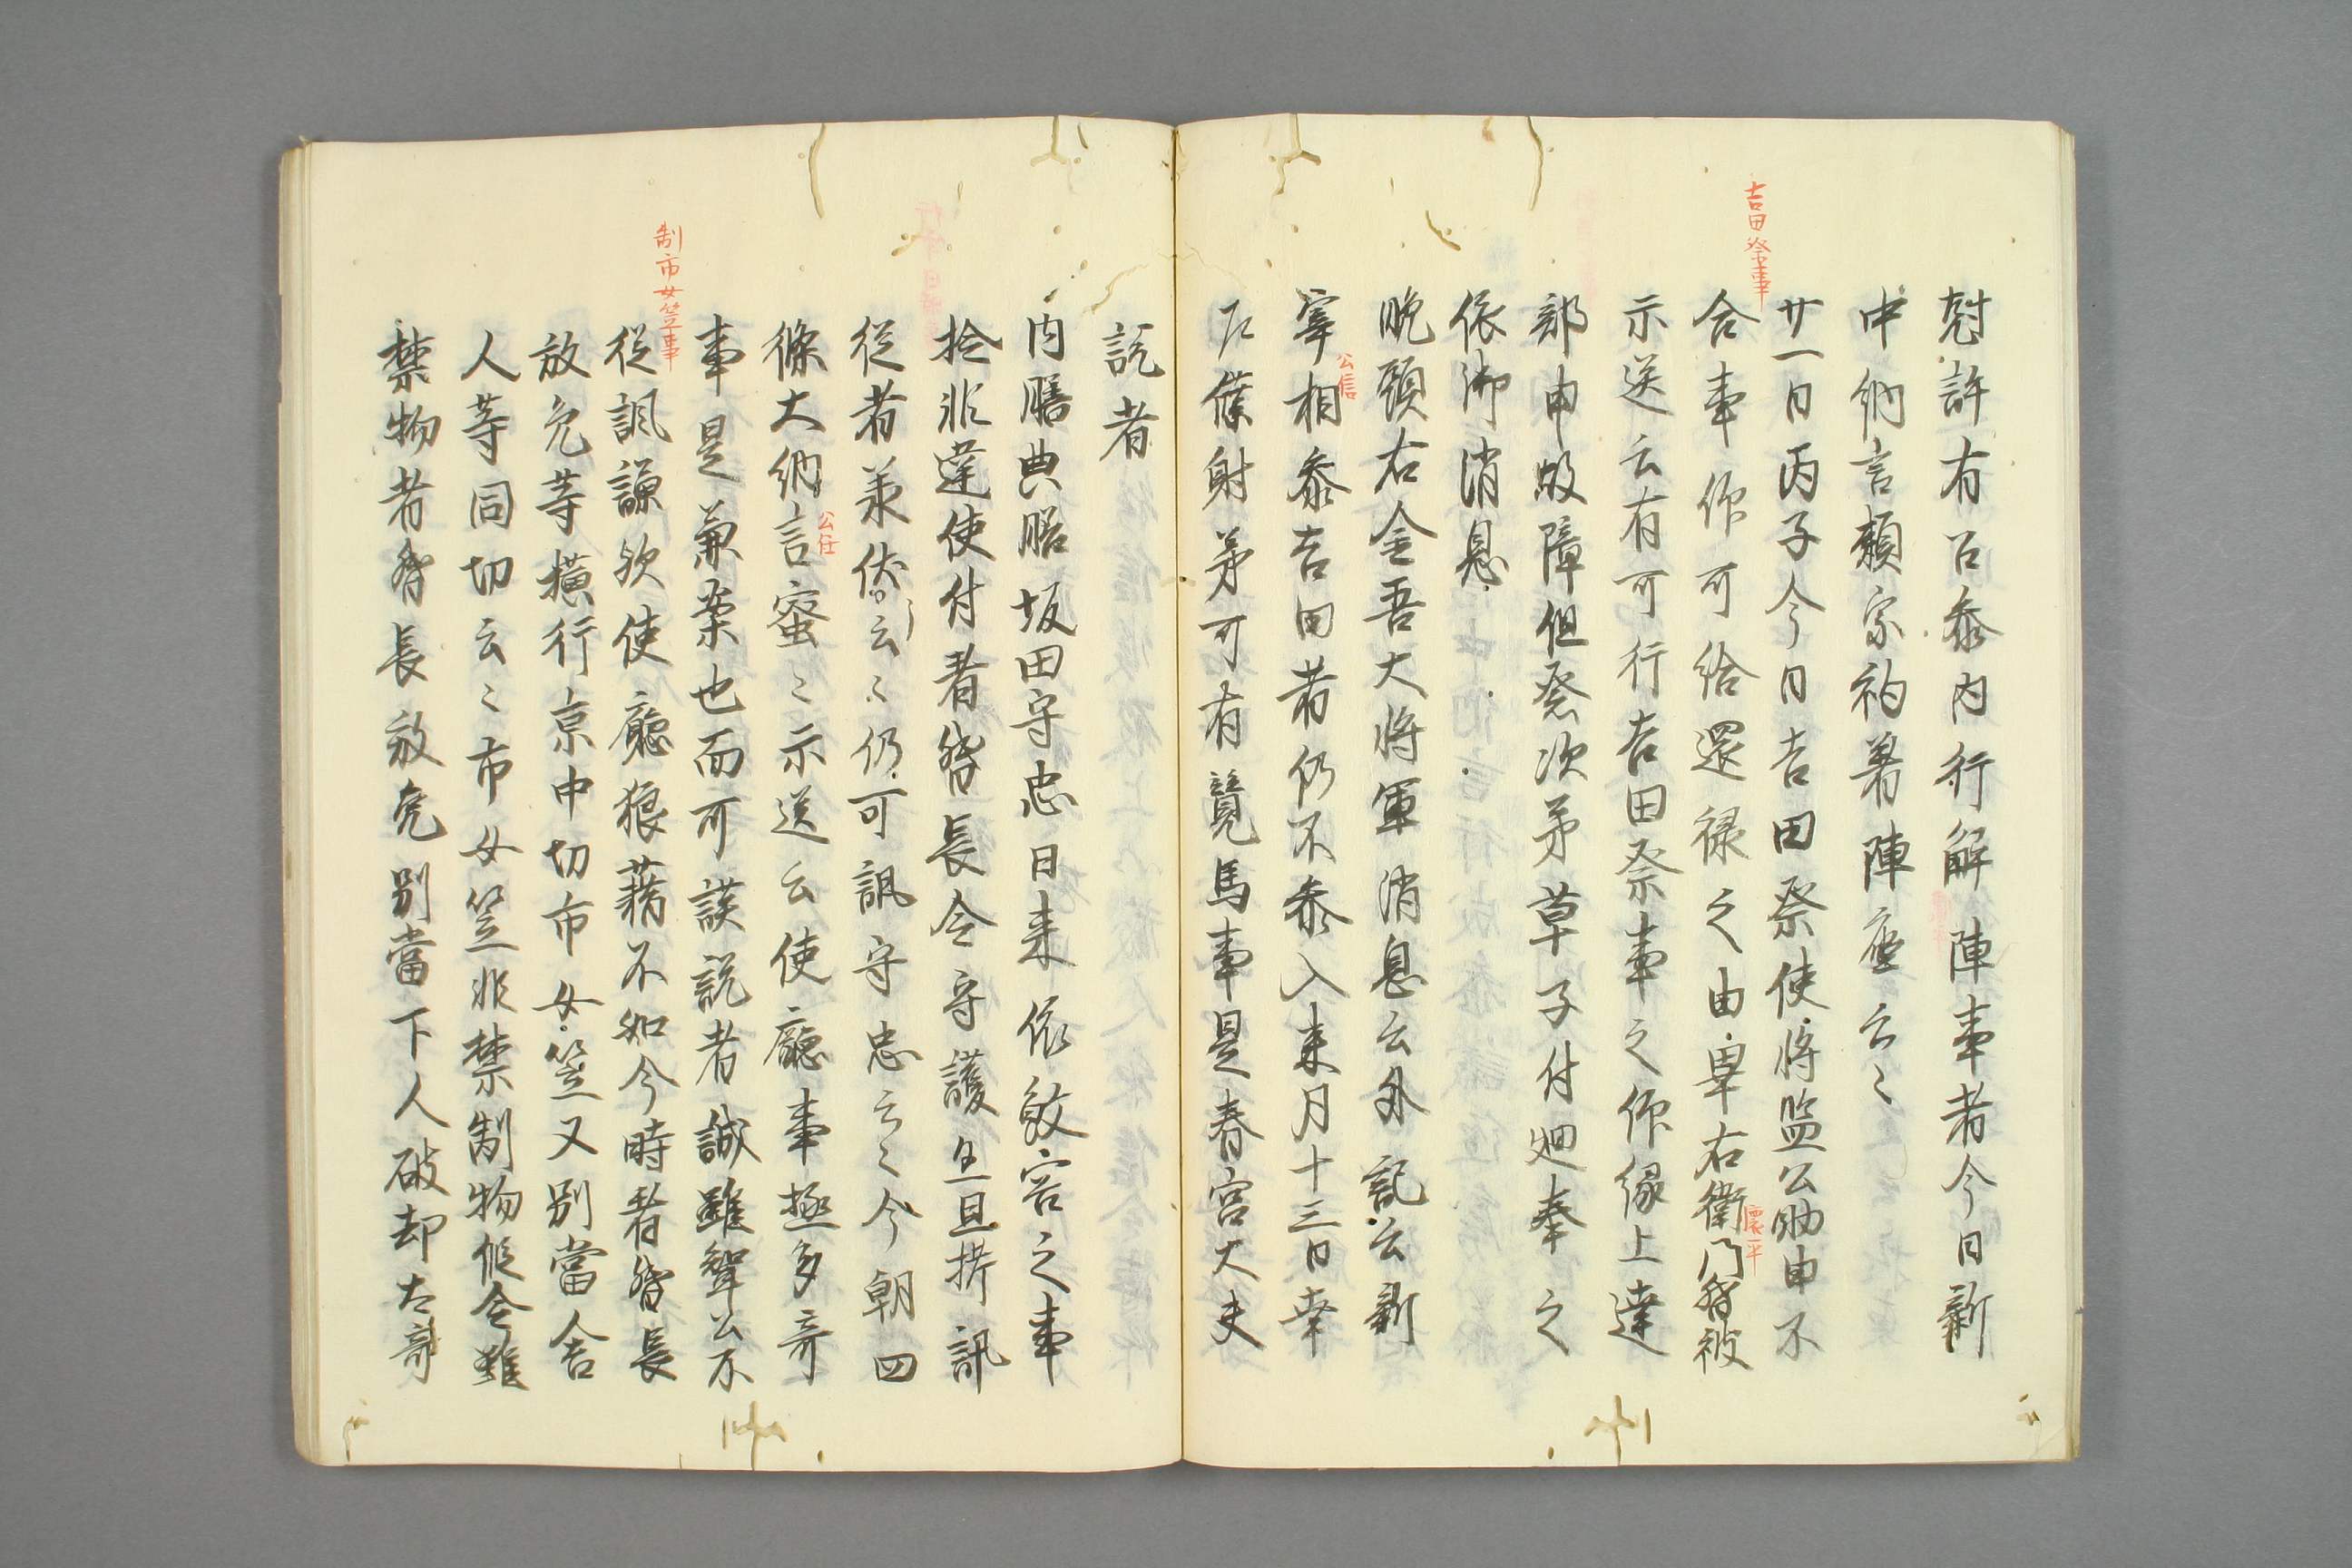 剋許有召参内行解陣事者今日新
中納言頼宗初著陣座云々
吉田祭事
廿一日丙子今日吉田祭使将監公助申不
合事仰可給還禄之由畢右衛門督被
懐平
示送云有可行吉田祭事之仰縁上達
部申故障但祭次第草子付廻奉之
依御消息
晩頭右金吾大将軍消息云外記云新
宰相参吉田者仍不参入来月十三日幸
公信
左僕射第可有覧馬事是春宮大夫
説者
内膳典膳坂田守忠日来依敵害之事
捡非違使付者督長令守護且拷訊
従者承伏云々仍可訊守忠云々今朝四
條大納言蜜々示送云使廳事極多奇
公任
事是兼案也而可談説者誠雖聟公不
従諷諫欤使廳狼藉不如今時者督長
制市女笠事
放免等横行京中切市女笠又別當舎
人等同切云々市女笠非禁制物假令雖
禁物者督長放免別當下人破却太奇